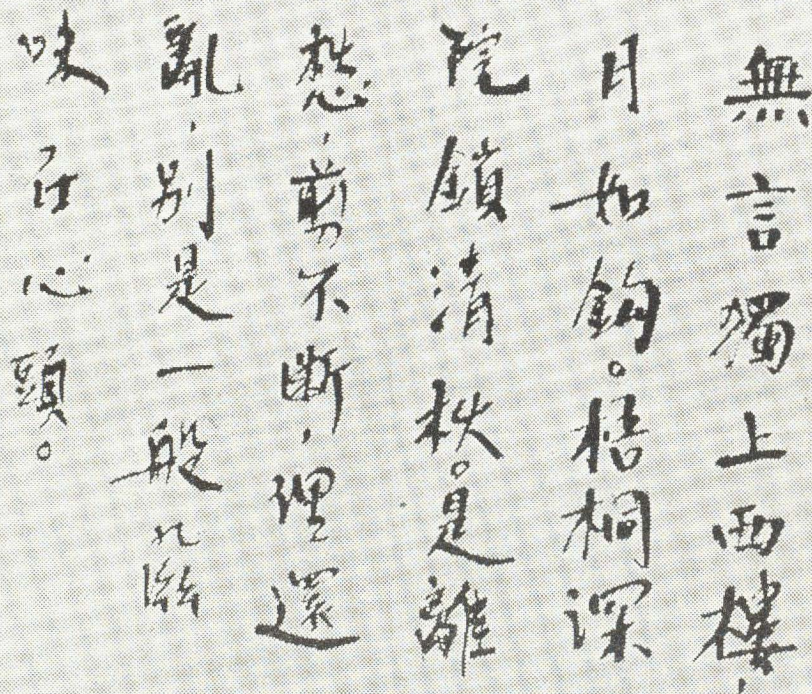 無言獨上西樓，
月如鈎。梧桐深
院鎖清秋。是離
愁，剪不斷，理還
亂，別是一般
味在心頭。